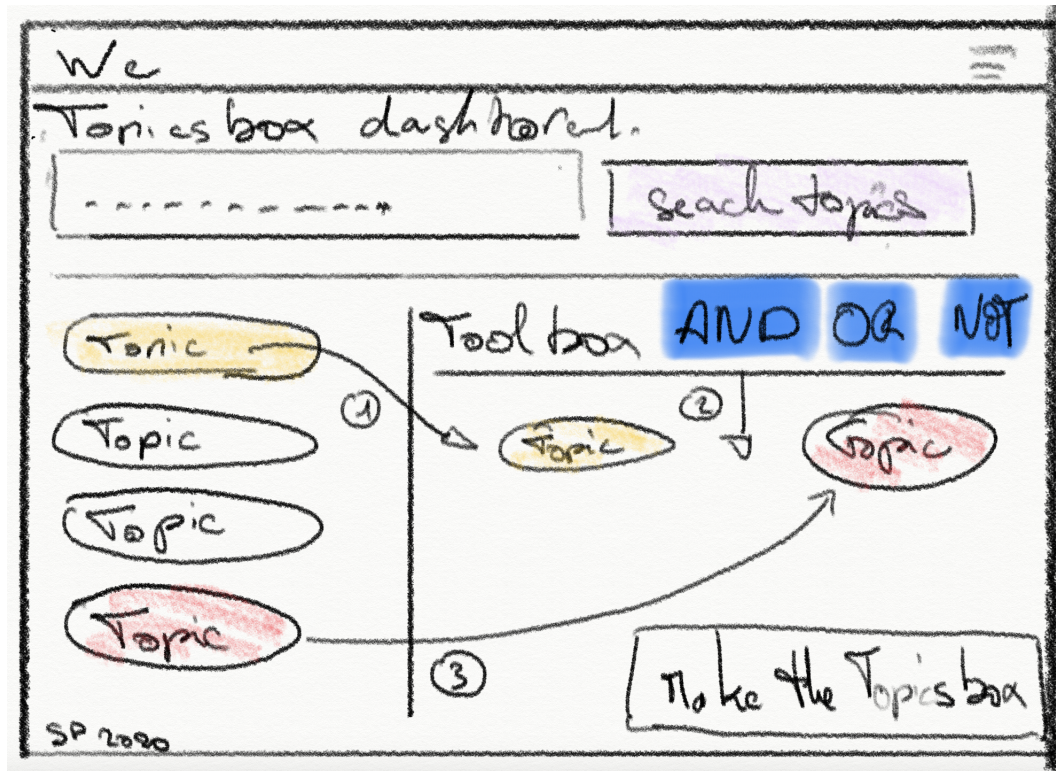 We
Topicsbox dashborel.
seach topics
Topic
Topic
Topic
Topic
Toolbox AND OR NOT
1
2
Topic
Topic
3
Make the Topicsbox
SP 2020